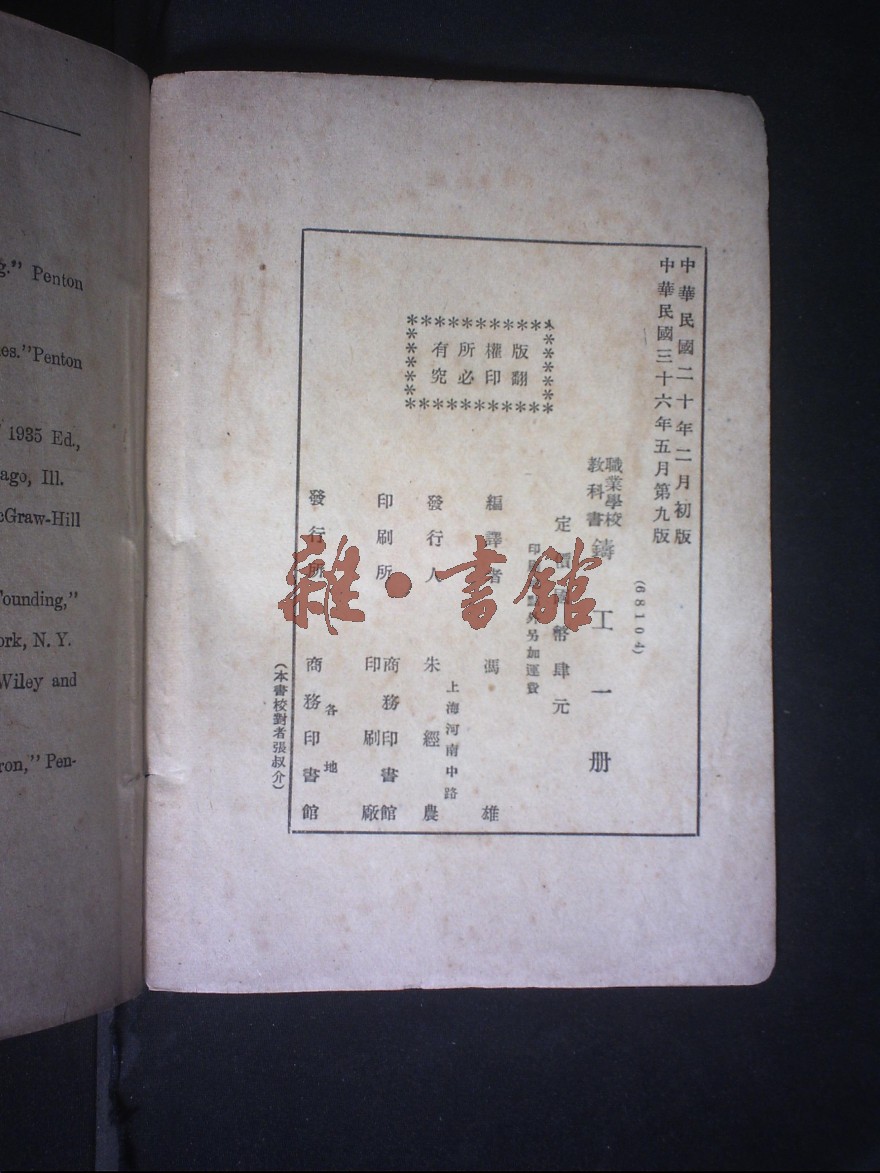 g." Penton
es." Penton
1935 Ed.,
ago, Ill.
Graw-Hill
Founding,"
ork, N. Y.
Wiley and
ron," Pen-
中華民國二十年二月初版
中華民國三十六年五月第九版
(68104)
職業學校
教科書
鑄工一册
定價國幣肆元
印刷地點外另加運費
版權所有
翻印必究
編譯者 馮雄
上海河南中路
發行人 朱經農
印刷所 商務印書館
印刷廠
發行所 各地
商務印書館
(本書校對者張叔介)
雜·書館